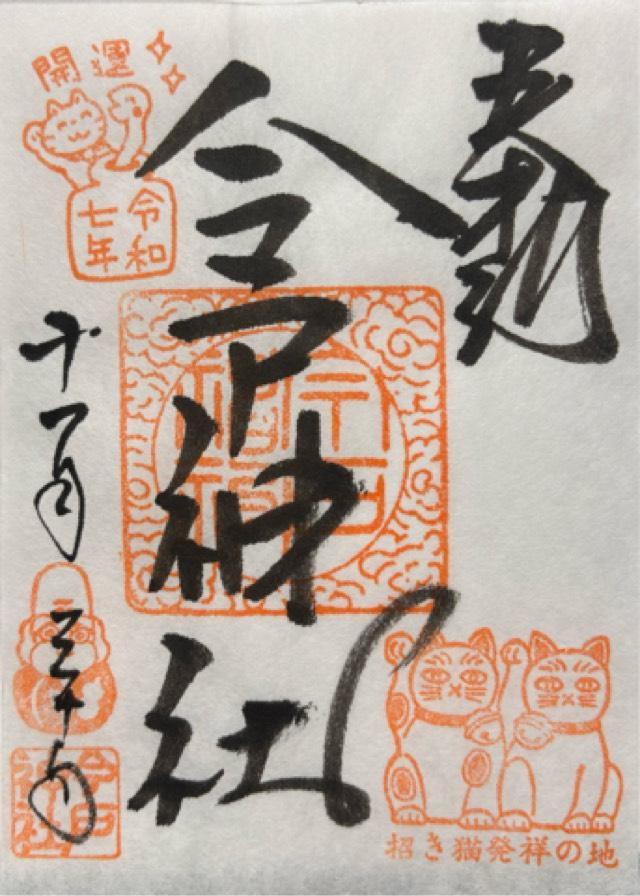 奉拝
今戸神社
開運
令和
七年
十一月
三十日
今戸
神社
招き猫発祥の地